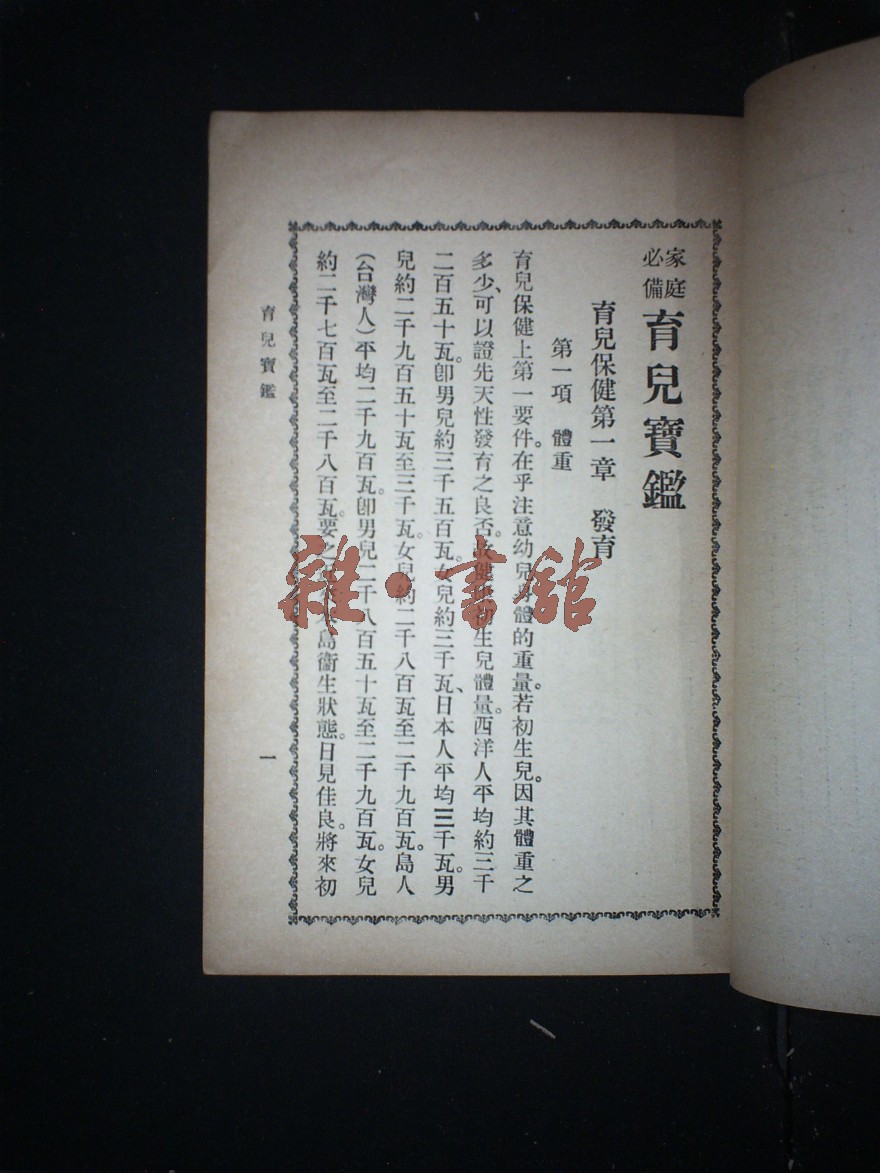 家庭必備 育兒寶鑑
育兒保健第一章 發育
第一項 體重
育兒保健上第一要件。在乎注意幼兒身體的重量。若初生兒。因其體重之
多少、可以證先天性發育之良否。故健康初生兒體量。西洋人平均約三千
二百五十瓦。卽男兒約三千五百瓦。女兒約三千瓦、日本人平均三千瓦。男
兒約二千九百五十瓦至三千瓦。女兒約二千八百瓦至二千九百瓦。島人
(台灣人)平均二千九百瓦。卽男兒二千八百五十瓦至二千九百瓦。女兒
約二千七百瓦至二千八百瓦。要之 島衞生狀態。日見佳良。將來初
育兒寶鑑
一
雜·書舘